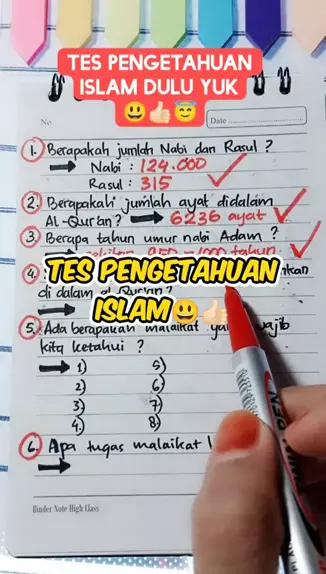 TES PENGETAHUAN
ISLAM DULU YUK
😃👍🏻😇
No.
Date
1. Berapakah jumlah Nabi dan Rasul ?
Nabi : 124.000
Rasul : 315
2. Berapakah jumlah ayat didalam
Al-Qur'an ? 6236 ayat
3. Berapa tahun umur nabi Adam ?
1000 tahun
4.
TES PENGETAHUAN
di dalam al-Qur'an ?
ISLAM😃👍🏻
5. Ada berapakah malaikat wajib
kita ketahui ?
1) 5)
2) 6)
3) 7)
4) 8)
6. Apa tugas malaikat
Binder Note High Class
PEN